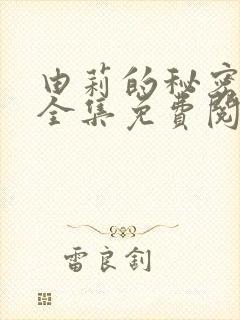 由莉的秘密
全集免费阅
雷良钊